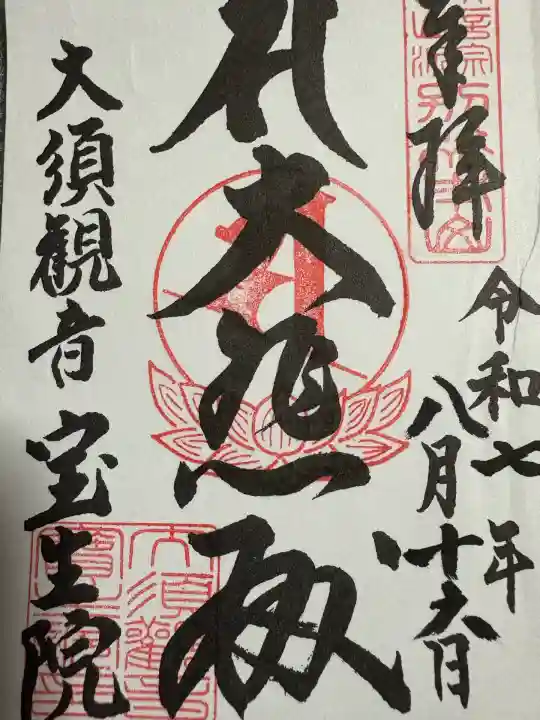 奉拝
令和七年
八月十六日
大悲殿
大須観音
宝生院
大須観音